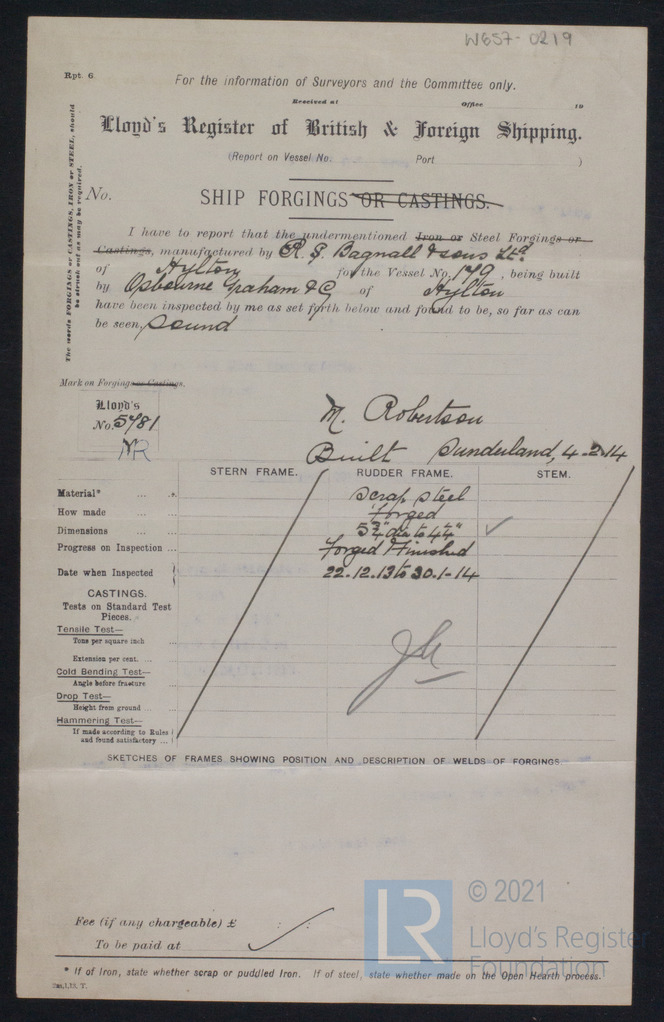 WES7-0219
Rpt. 6.
For the information of Surveyors and the Committee only.
Received at Office 19
Lloyd's Register of British & Foreign Shipping.
(Report on Vessel No. Port )
The words FORGINGS or CASTINGS, IRON or STEEL, should
be struck out as may be required.
No.
SHIP FORGINGS OR CASTINGS.
I have to report that the undermentioned Iron or Steel Forgings or
Castings, manufactured by R. S. Bagnall & Sons Ltd
of Hylton for the Vessel No. 179, being built
by Osbourne Graham & Co of Hylton
have been inspected by me as set forth below and found to be, so far as can
be seen, sound
Mark on Forgings or Castings.
Lloyd's
No. 5781
MR
M. Robertson
Built Sunderland, 4-2-14
STERN FRAME. RUDDER FRAME. STEM.
Material* ... ... scrap steel
How made ... Forged
Dimensions ... 5¾" dia to 4¼" ✓
Progress on Inspection ... Forged & Finished
Date when Inspected { 22.12.13 to 30.1-14
CASTINGS.
Tests on Standard Test
Pieces.
Tensile Test—
Tons per square inch
Extension per cent. ...
Cold Bending Test—
Angle before fracture ...
Drop Test—
Height from ground ...
Hammering Test—
If made according to Rules
and found satisfactory ...
SKETCHES OF FRAMES SHOWING POSITION AND DESCRIPTION OF WELDS OF FORGINGS
Fee (if any chargeable) £ : :
To be paid at
* If of Iron, state whether scrap or puddled Iron. If of steel, state whether made on the Open Hearth process.
LR
© 2021
Lloyd's Register
Foundation